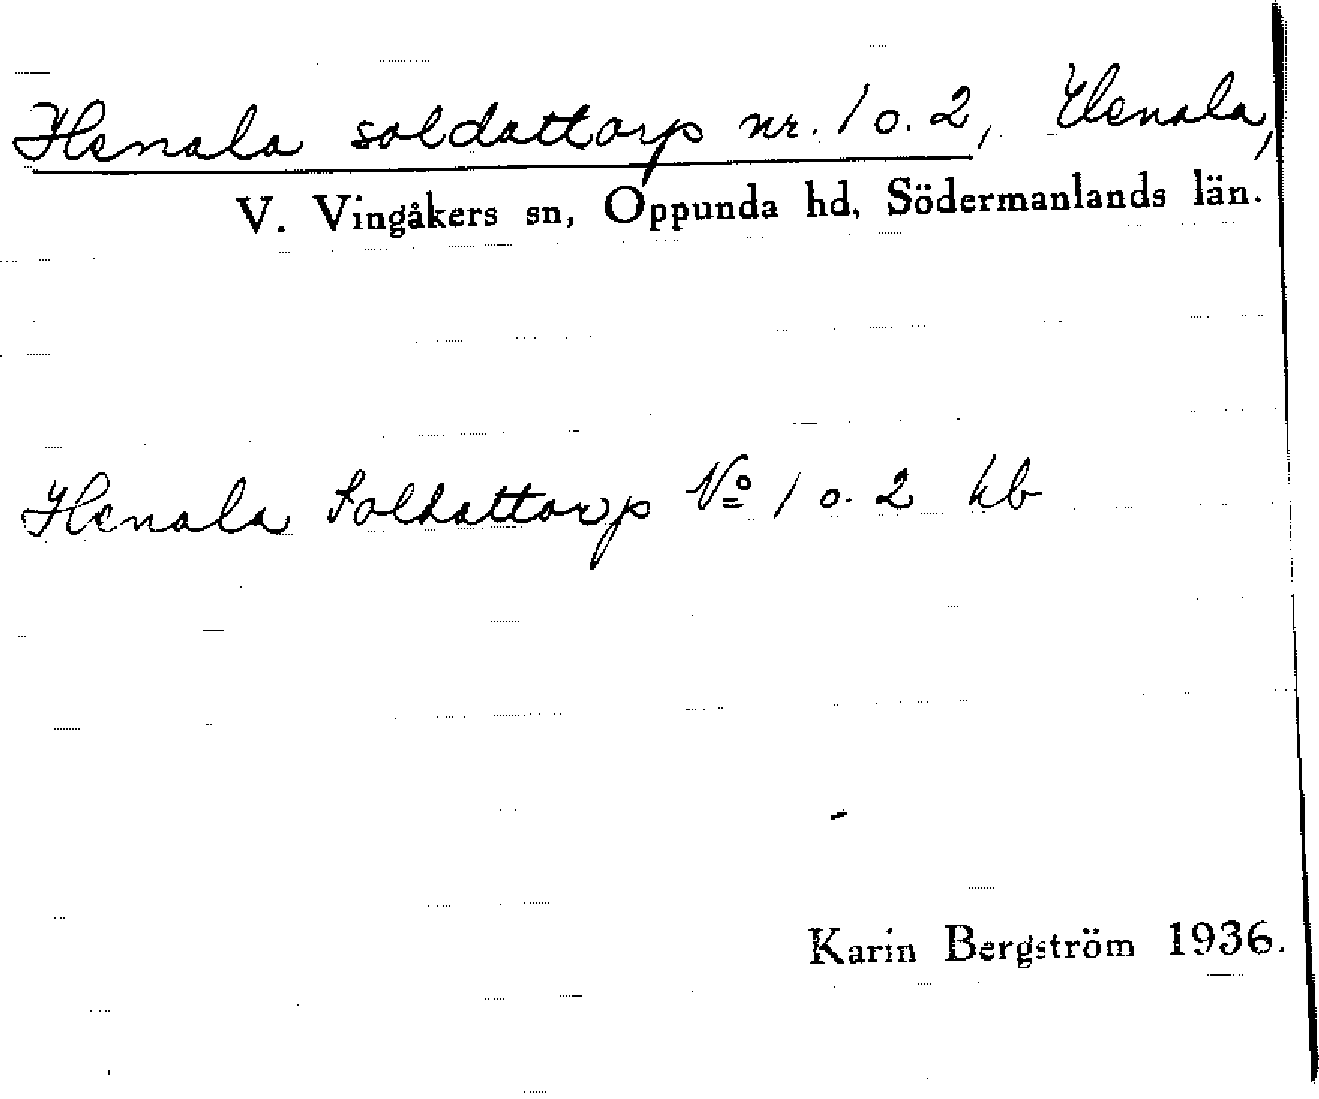 Henala soldattorp nr. 1 o. 2, Henala,
V. Vingåkers sn, Oppunda hd, Södermanlands län.
Henala Soldattorp No 1 o. 2 hb
Karin Bergström 1936.